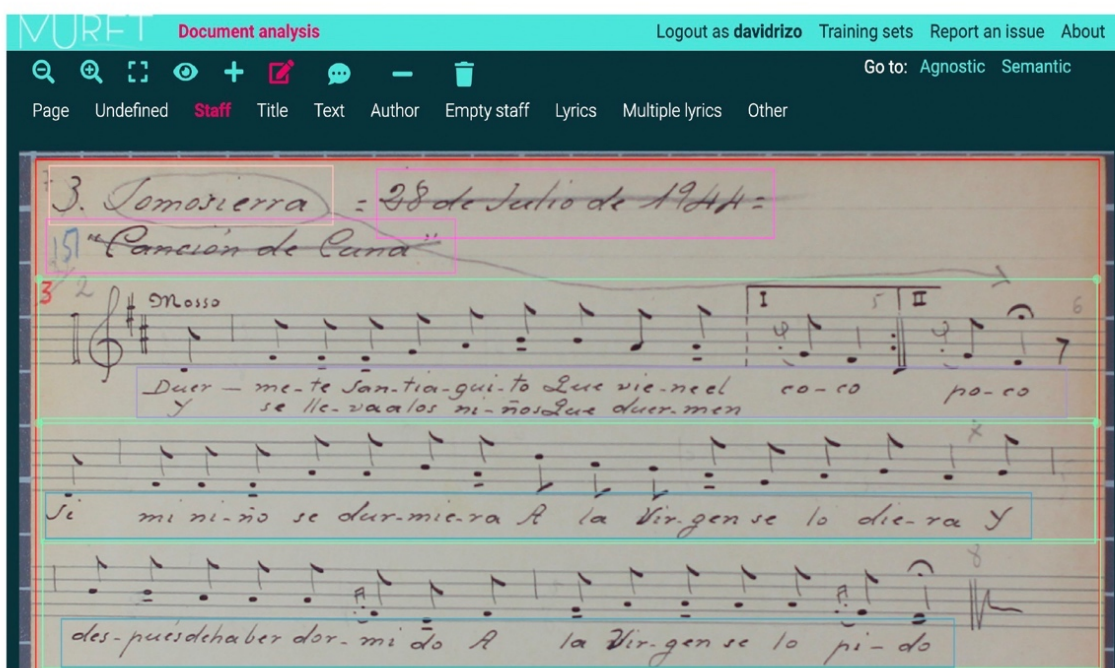 MURET Document analysis Logout as davidrizo Training sets Report an issue About
Go to: Agnostic Semantic
Page Undefined Staff Title Text Author Empty staff Lyrics Multiple lyrics Other
3. Somosierra = 28 de Julio de 1944=
151 "Canción de Cuna"
3 2 Mosso I 5 II 6
Duer - me-te San-tia-gui-to Que vie-neel co-co po-co
Y se lle-vaalos ni-ñosQue duer-men
7
Si mi ni-ño se dur-mie-ra A la Vir-gen se lo die-ra Y
8
des-puésdehaber dor-mi do A la Vir-gen se lo pi-do